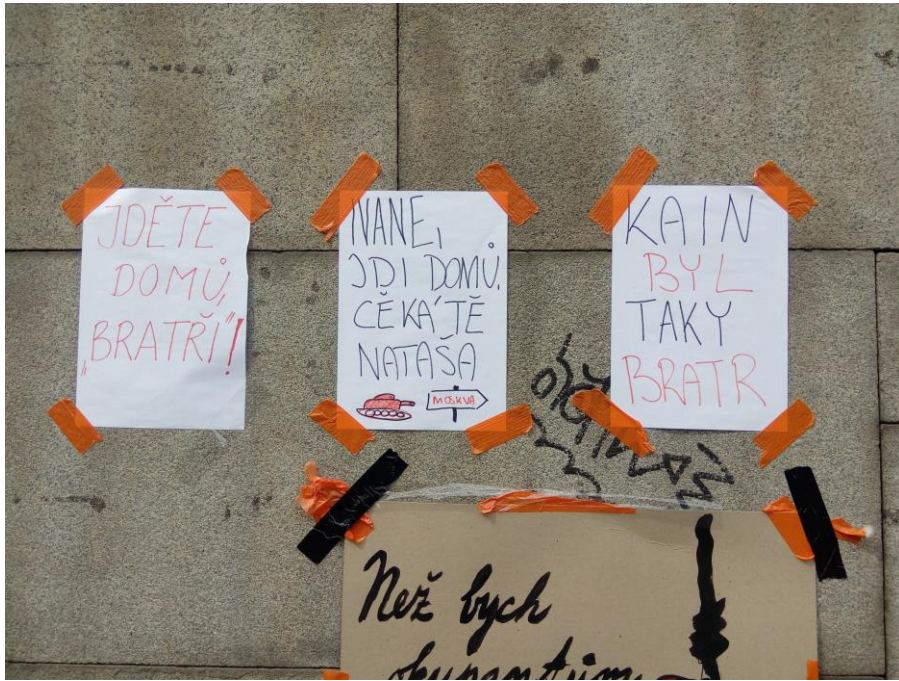 JDĚTE
DOMŮ,
„BRATŘI“!
IVANE,
JDI DOMŮ.
ČEKÁ TĚ
NATAŠA
MOSKVA
KAIN
BYL
TAKY
BRATR
Než bych
okupantům